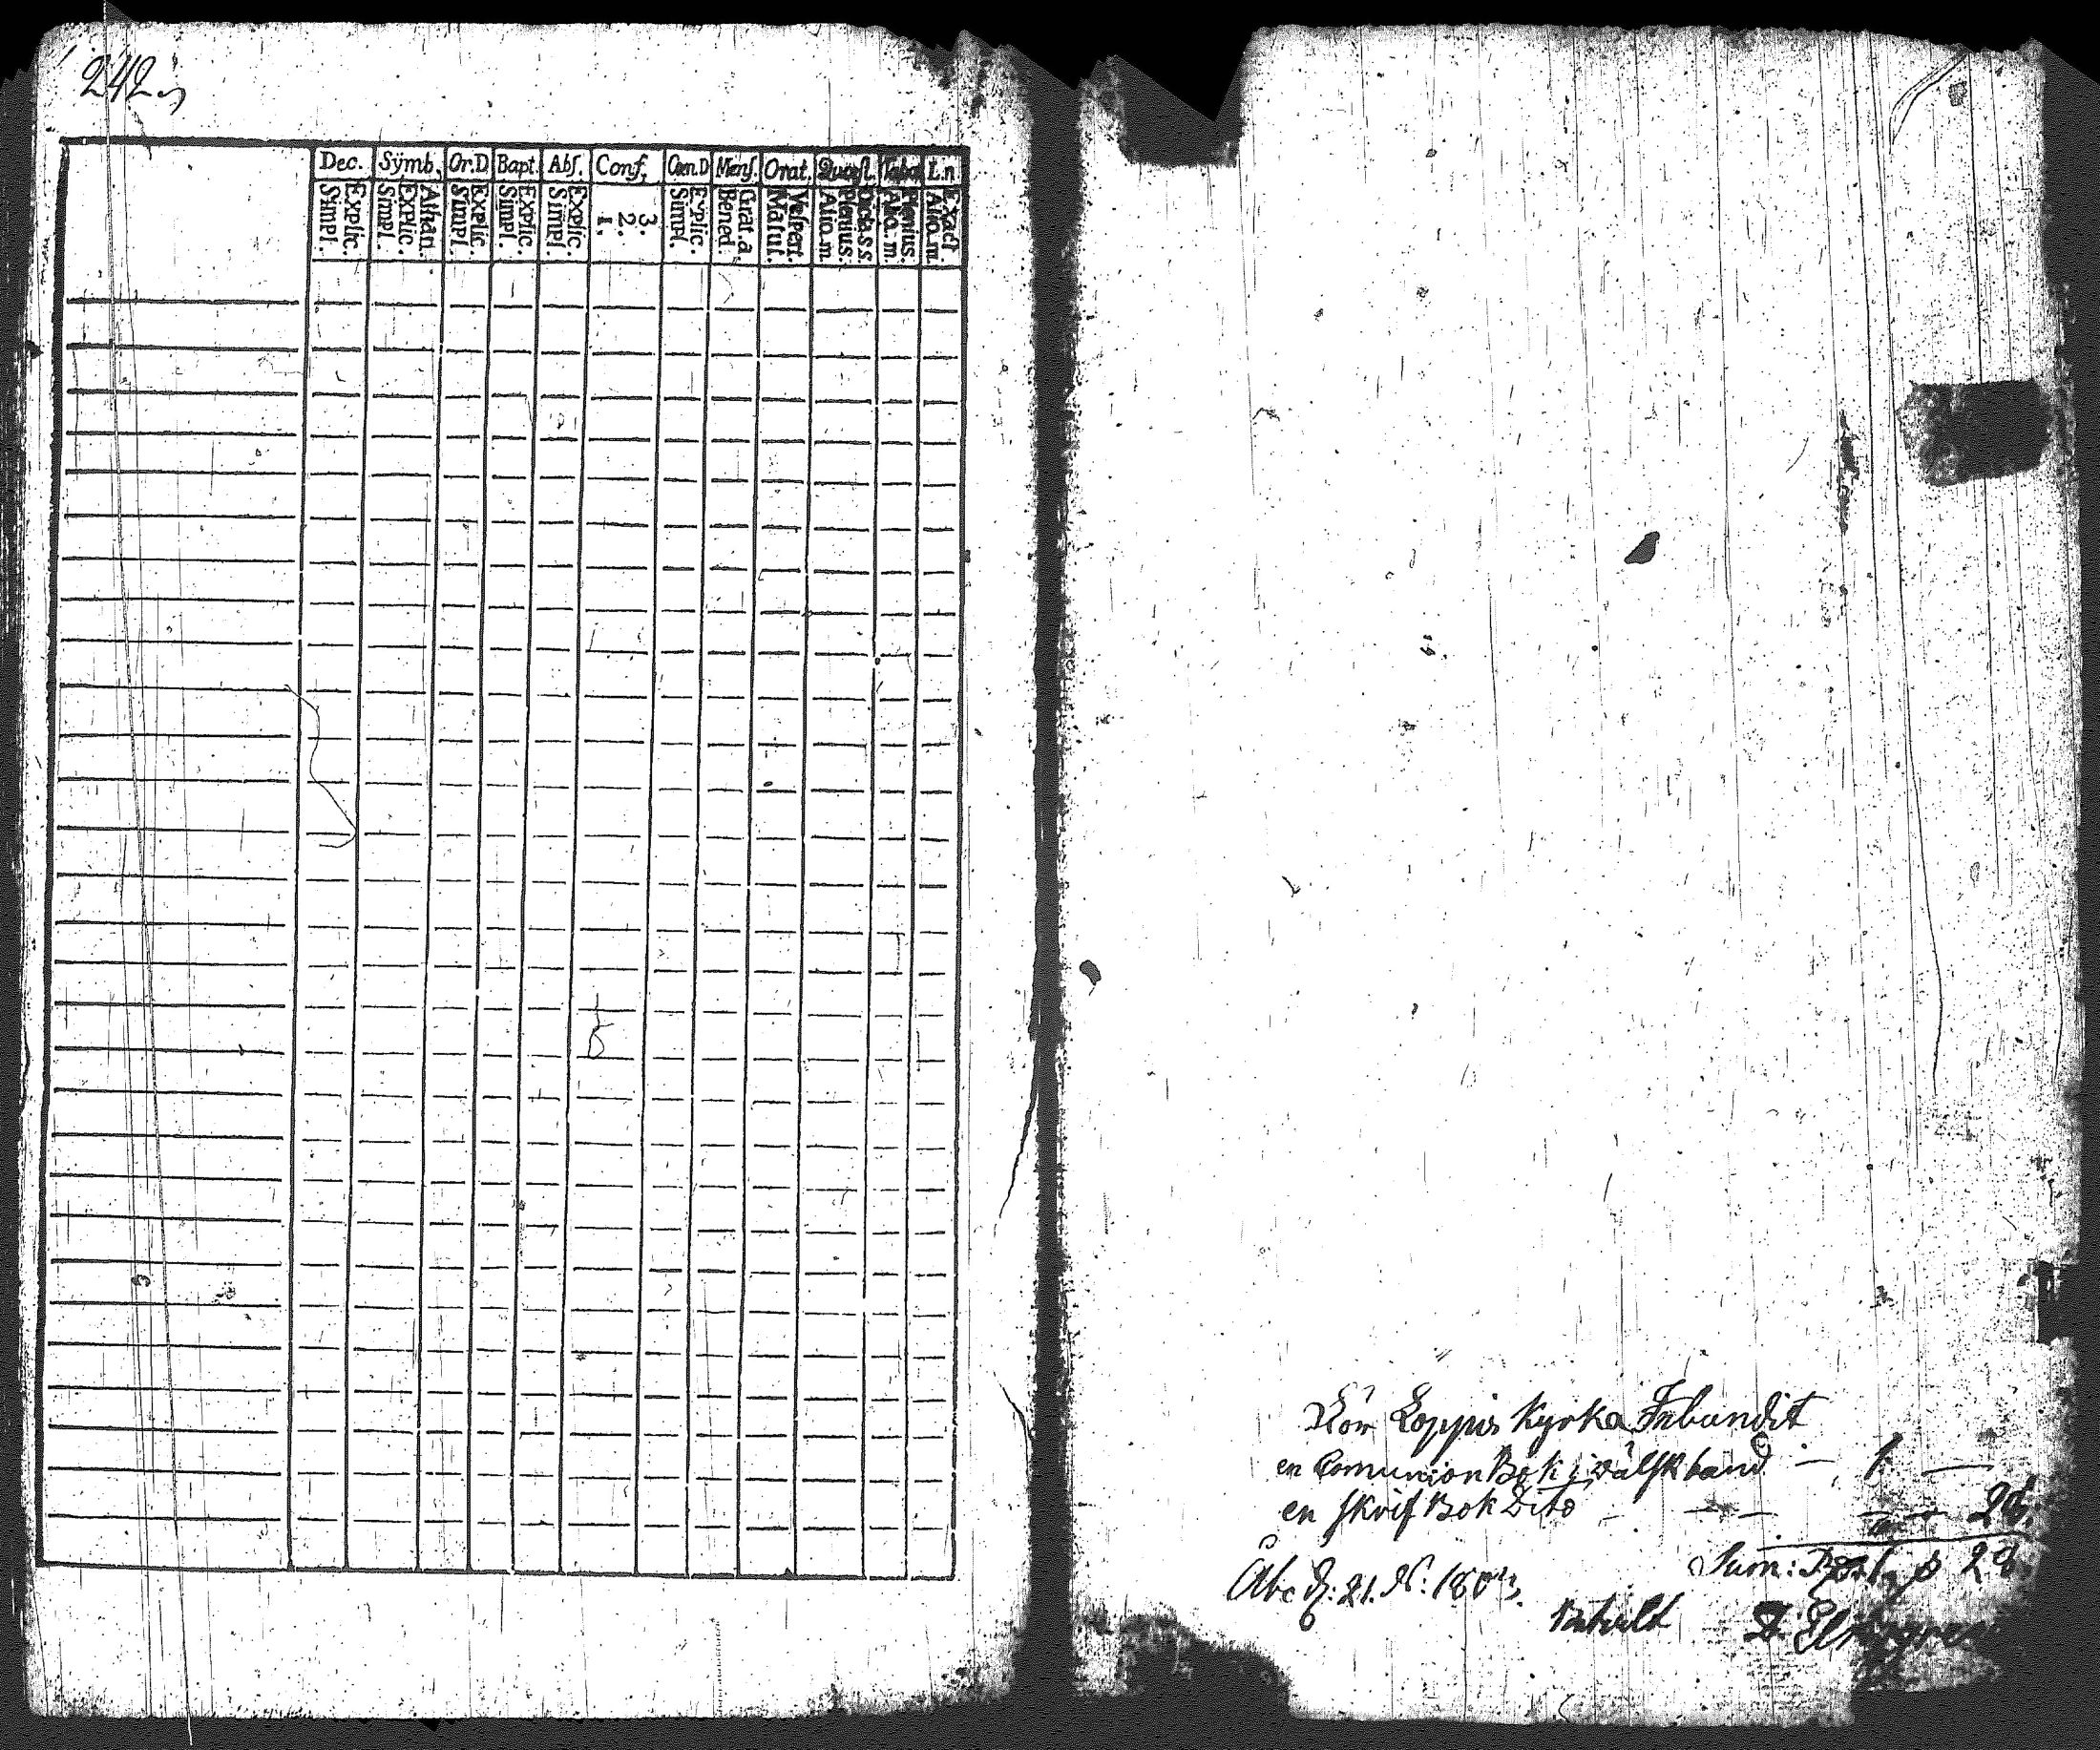 242
Dec. Symb. Or.D. Bapt. Abs. Conf. Coen.D Mens. Orat. Quaest. Tabul L.n
Explic. Simpl. Athan. Explic. Simpl. Explic. Simpl. Explic. Simpl. Explic. Simpl. 3. 2. 1. Explic. Simpl. Grat.a. Bened. Vespert. Matut. Dicta s.s. Plenius. Aliq.m. Plenius. Aliq.m. Exact. Aliq.m.
För Loppis Kyrka Inbundit
en Comunion Bok i wälsk band — 1 —
en skrif Bok Dito — — — 28.
Sum: 28.
Åbo d: 21. 180
Betalt